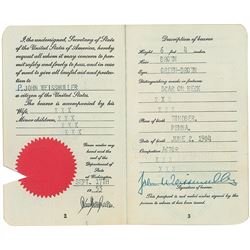 I the undersigned, Secretary of State
of the United States of America, hereby
request all whom it may concern to per-
mit safely and freely to pass, and in case
of need to give all lawful aid and protec-
tion to
P. JOHN WEISSMULLER
a citizen of the United States.
The bearer is accompanied by his
Wife, X X X
Minor children, X X X
X X X
X X X
Given under my
hand and the
seal of the
Department of
State
at Washington,
SEPT. 17TH
19
2
Description of bearer
Height 6 feet 4 inches
Hair BROWN
Eyes GREEN-BROWN
Distinguishing marks or features:
SCAR ON NECK
X X X
X X X
Place of birth
PENNA.
Date of birth JUNE 2, 1904
Occupation ACTOR
X X X
John Weissmuller
Signature of bearer.
This passport is not valid unless signed by the
person to whom it has been issued.
3